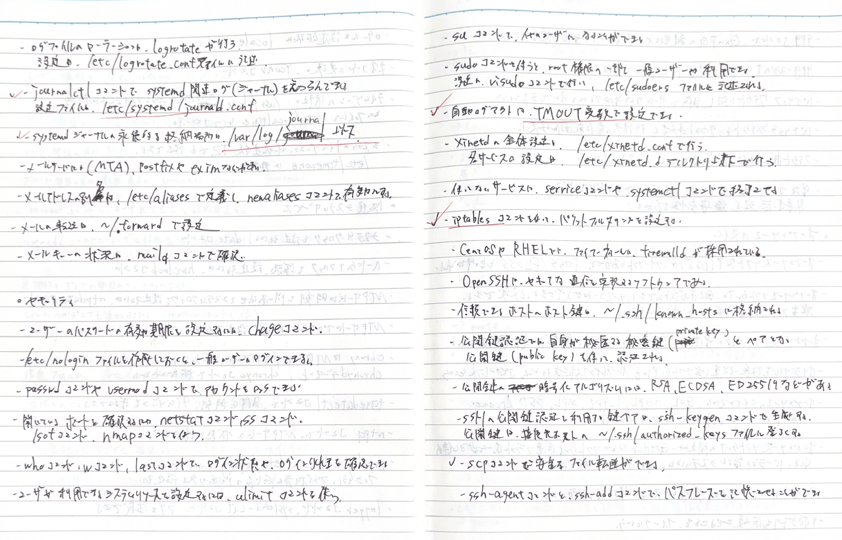 - ログファイルのローテーションは、logrotate が行う
設定は、/etc/logrotate.conf ファイルに記述
- journalctl コマンドで systemd 関連ログ(ジャーナル)を
設定ファイルは、/etc/systemd/journald.conf
- systemd ジャーナルの永続的な格納場所は、/var/log/journal 以下
- メールサーバには(MTA)、postfix や exim などがある。
- メールアドレスの別名は、/etc/aliases で定義し、newaliases コマンドで有効になる。
- メールの転送は、~/.forward で設定
- メールキューの状況は、mailq コマンドで確認。
○ セキュリティ
- ユーザーのパスワードの有効期限を設定するには、chage コマンド。
- /etc/nologin ファイルを作成しておくと、一般ユーザーはログインできない。
- passwd コマンドや usermod コマンドで、アカウントをロックできる
- 開いているポートを確認するには、netstat コマンド、ss コマンド、
lsof コマンド、nmap コマンドを使う。
- who コマンド、w コマンド、last コマンドで、ログイン状況や、ログイン履歴を確認できる
- ユーザが利用できるシステムリソースを設定するには、ulimit コマンドを使う
- su コマンドで、他のユーザーになることができる
- sudo コマンドを使うと、root 権限の一部を一般ユーザーが利用できる
設定は、visudo コマンドで行い、/etc/sudoers ファイルに記述される。
- 自動ログアウトは、TMOUT 変数で設定できる。
- xinetd の全体設定は、/etc/xinetd.conf で行う。
各サービスの設定は、/etc/xinetd.d ディレクトリ以下で行う。
- 使わないサービスは、service コマンドや systemctl コマンドで終了する
- iptables コマンドを使い、パケットフィルタリングを設定する。
- CentOS や RHEL では、ファイアウォールに firewalld が採用されている。
- OpenSSH は、セキュアな通信を実現するソフトウェアである。
- 信頼できるホストのホスト鍵は、~/.ssh/known_hosts に格納される
- 公開鍵認証では、自身が秘匿する秘密鍵(private key)とペアとなる
公開鍵(public key)を使い、認証される。
- 公開鍵の暗号化アルゴリズムには、RSA、ECDSA、ED25519 などがある
- ssh の公開鍵認証で利用する鍵ペアは、ssh-keygen コマンドで生成する。
公開鍵は、接続先ホストの ~/.ssh/authorized_keys ファイルに登録する。
- scp コマンドで安全なファイル転送ができる。
- ssh-agent コマンドと、ssh-add コマンドで、パスフレーズを記憶させることができる